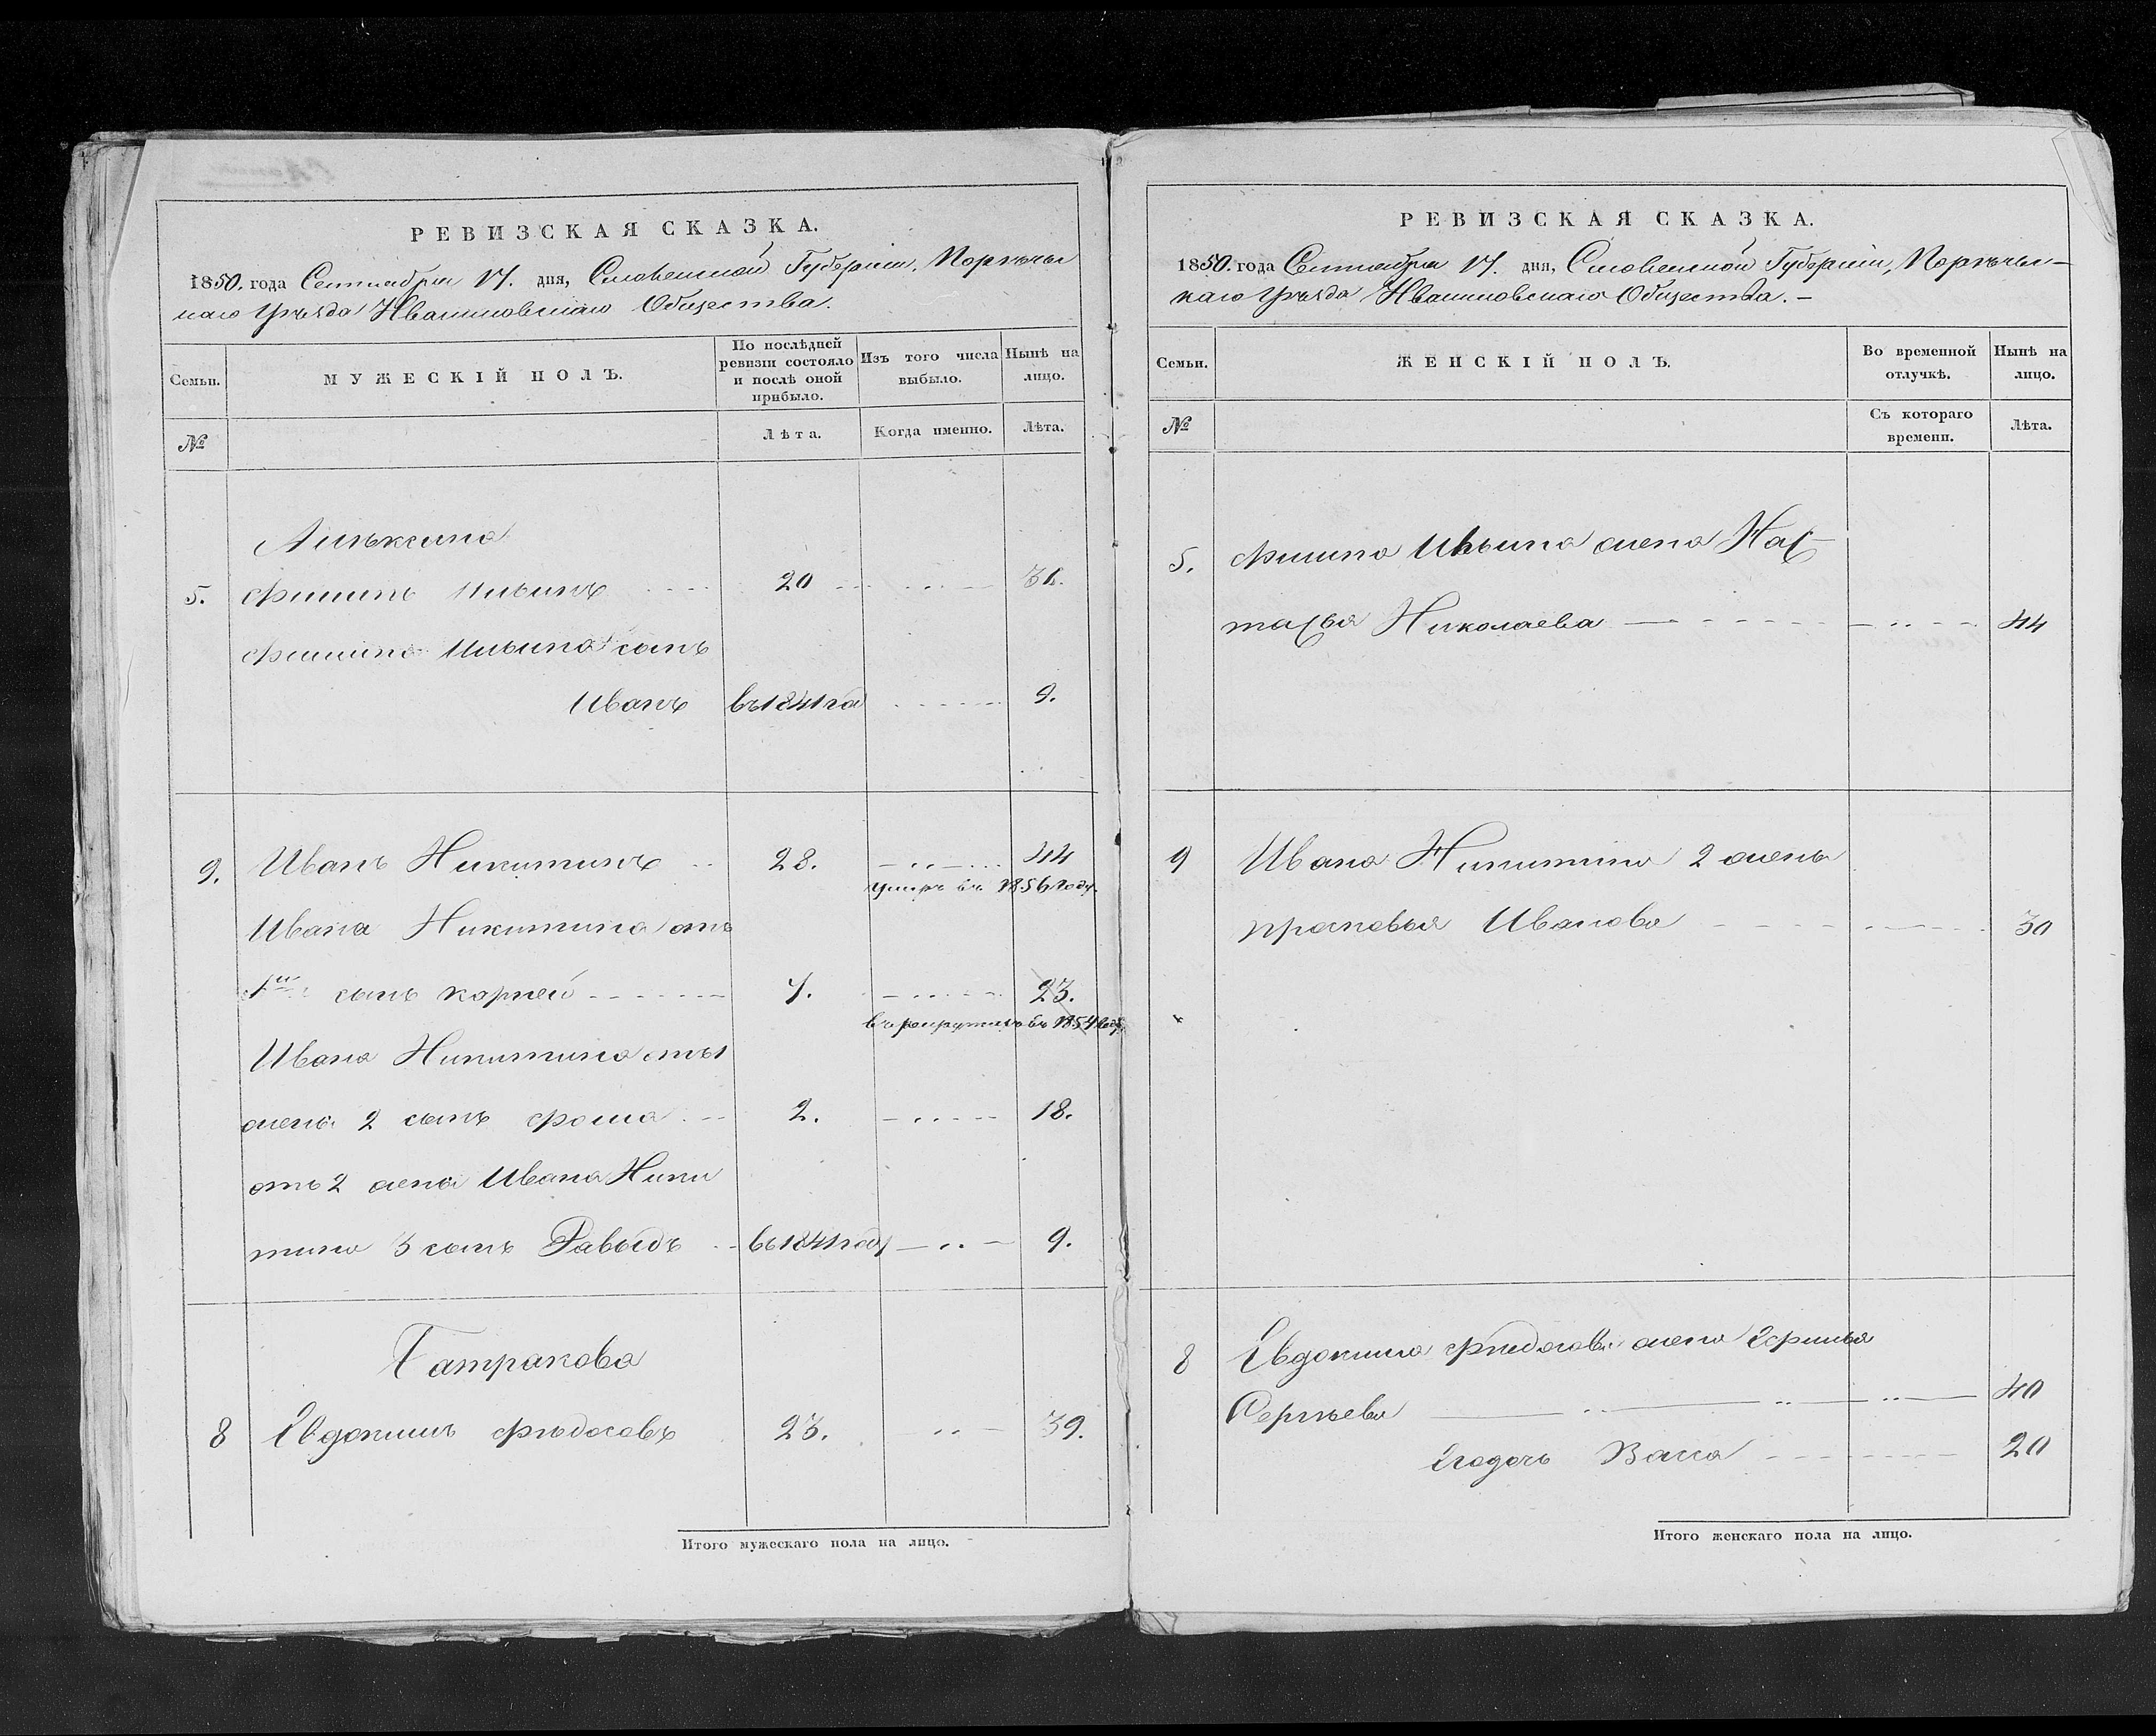 РЕВИЗСКАЯ СКАЗКА.
1850. года Сентября 17. дня, Смоленской Губернiи, Порѣчьс
каго Уѣзда Ивашковскаго Общества.
Семьи.
МУЖЕСКІЙ ПОЛЪ.
По послѣдней ревизіи состояло и послѣ оной прибыло.
Изъ того числа выбыло.
Нынѣ на лицо.
№
Лѣта.
Когда именно.
Лѣта.
5. Филипъ Ильинъ 20
Филипа Ильина сынъ
Иванъ въ 1841 год 9.
9. Иванъ Никитинъ 28. 44
умеръ въ 1856 году.
Ивана Никитина отъ
1й сынъ Корней 7. 23.
въ рекруты въ 1854 году
Ивана Никитина отъ 1
жены 2 сынъ Фома 2. 18.
отъ 2 жены Ивана Ники
тина 3 сынъ Давыдъ въ 1841 году 9.
Батракова
8 Евдокимъ Ѳедосовъ 23. 39.
Итого мужескаго пола на лицо.
РЕВИЗСКАЯ СКАЗКА.
1850. года Сентября 17. дня, Смоленской Губернiи, Порѣчьс-
каго Уѣзда Ивашковскаго Общества.-
Семьи.
ЖЕНСКІЙ ПОЛЪ.
Во временной отлучкѣ.
Нынѣ на лицо.
№
Съ котораго времени.
Лѣта.
5. Филипа Ильина жена Нас-
тасья Николаева 44
9 Ивана Никитина 2 жена
Прасковья Иванова 30
8 Евдокима Ѳедосова жена
Сергѣева 40
дочь Васса 20
Итого женскаго пола на лицо.